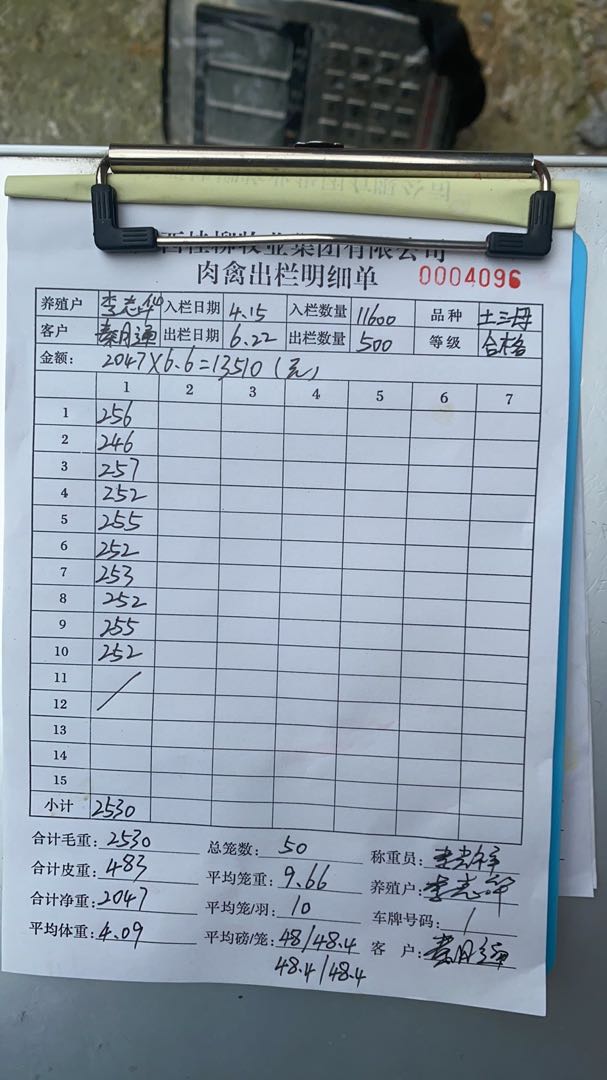 西桂柳牧业集团有限公司
肉禽出栏明细单 0004096
养殖户 李志华 入栏日期 4.15 入栏数量 11600 品种 土三母
客户 秦月通 出栏日期 6.22 出栏数量 500 等级 合格
金额: 2047×6.6=13510(元)
1 2 3 4 5 6 7
1 256
2 246
3 257
4 252
5 255
6 252
7 253
8 252
9 255
10 252
11 /
12
13
14
15
小计 2530
合计毛重: 2530 总笼数: 50 称重员:
合计皮重: 483 平均笼重: 9.66 养殖户: 李志华
合计净重: 2047 平均笼/羽: 10 车牌号码: /
平均体重: 4.09 平均磅/笼: 48/48.4 客 户: 秦月通
48.4/48.4